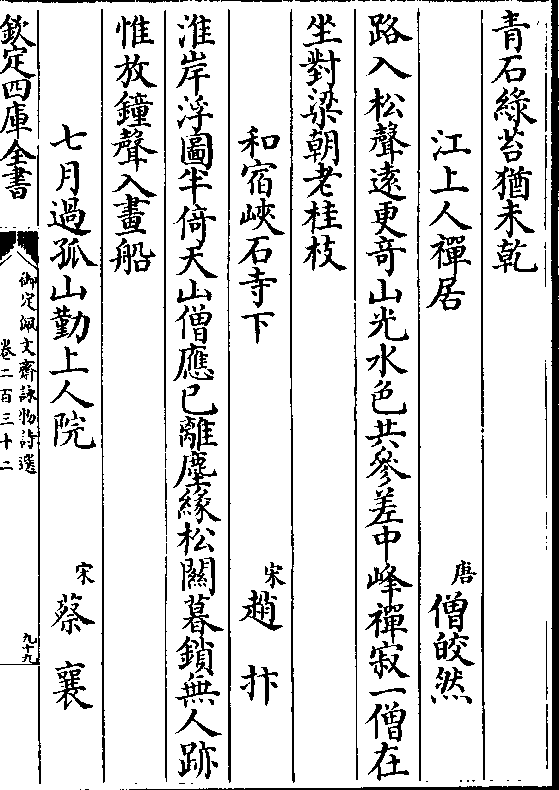 青石綠苔猶未乾
江上人禪居
唐 僧皎然
路入松聲逺更竒山光水色共參差中峰禪寂一僧在
坐對梁朝老桂枝
和宿峽石寺下
宋 趙抃
淮岸浮圖半倚天山僧應已離塵緣松關暮鎖無人跡
惟放鐘聲入畫船
七月過孤山勤上人院
宋 蔡襄
欽定四庫全書
御定佩文齋詠物詩選
卷二百三十二
九十九